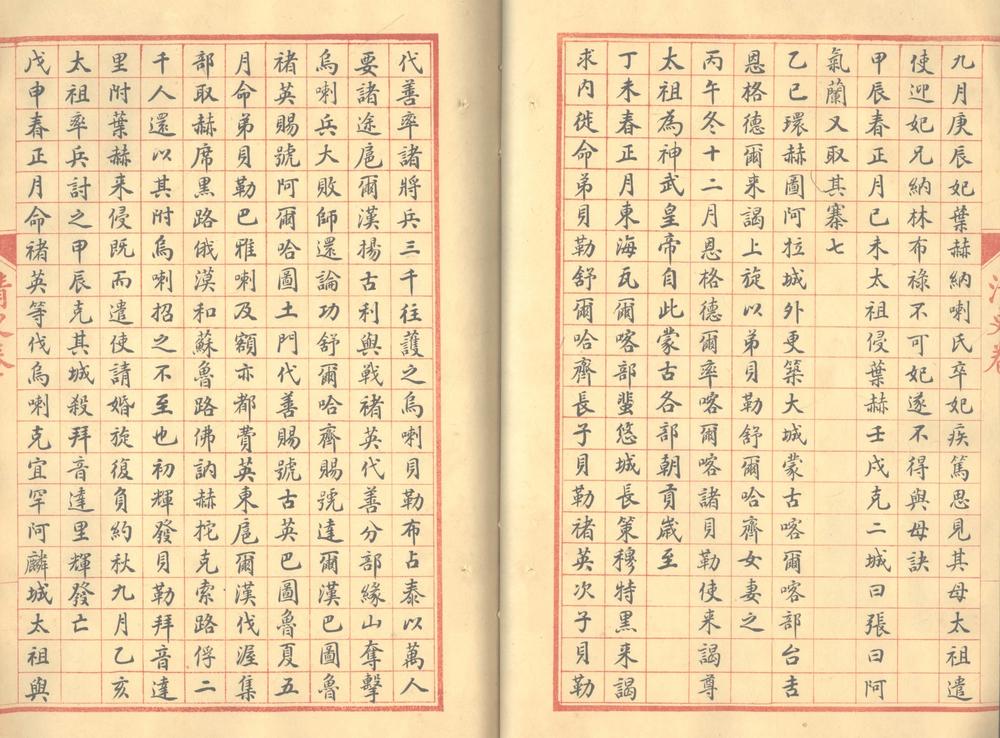 九月庚辰妃葉赫納喇氏卒妃疾篤思見其母太祖遣
使迎妃兄納林布祿不可妃遂不得與母訣
甲辰春正月己未太祖侵葉赫壬戌克二城曰張曰阿
氣蘭又取其寨七
乙巳環赫圖阿拉城外更築大城蒙古喀爾喀部台吉
恩格德爾來謁上旋以弟貝勒舒爾哈齊女妻之
丙午冬十二月恩格德爾率喀爾喀諸貝勒使來謁尊
太祖為神武皇帝自此蒙古各部朝貢歲至
丁未春正月東海瓦爾喀部蜚悠城長策穆特黑來謁
求內徙命弟貝勒舒爾哈齊長子貝勒褚英次子貝勒
代善率諸將兵三千往護之烏喇貝勒布占泰以萬人
要諸途扈爾漢揚古利與戰褚英代善分部緣山奪擊
烏喇兵大敗師還論功舒爾哈齊賜號達爾漢巴圖魯
褚英賜號阿爾哈圖土門代善賜號古英巴圖魯夏五
月命弟貝勒巴雅喇及額亦都費英東扈爾漢伐渥集
部取赫席黑路俄漠和蘇魯路佛訥赫拕克索路俘二
千人還以其附烏喇招之不至也初輝發貝勒拜音達
里附葉赫來侵既而遣使請婚旋復負約秋九月乙亥
太祖率兵討之甲辰克其城殺拜音達里輝發亡
戊申春正月命褚英等伐烏喇克宜罕阿麟城太祖與